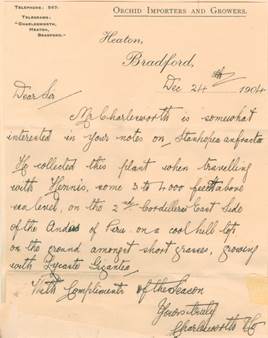 TELEPHONE: 567.
TELEGRAMS:
"CHARLESWORTH,
HEATON,
BRADFORD."
ORCHID IMPORTERS AND GROWERS.
Heaton,
Bradford,
Dec 24th 1904
Dear Sir
Mr Charlesworth is somewhat
interested in your notes on Stanhopea anfracta
He collected this plant when travelling
with Hennis, some 3 to 4000 feet above
sea level, on the 2nd Cordillera East Side
of the Andes of Peru, on a cool hill top
on the ground amongst short grasses, growing
with Lycaste Gigantea
With Compliments of the Season
Yours truly
Charlesworth & Co